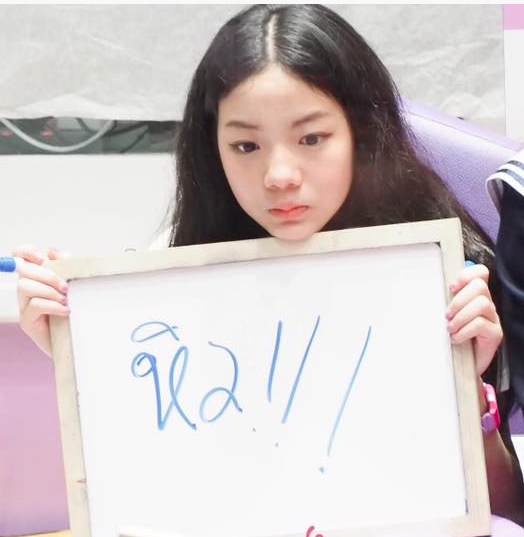 หิว!!!